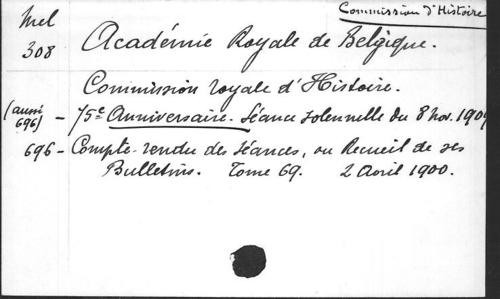 Commission d'Histoire
Mel
308
Académie Royale de Belgique.
Commission royale d'Histoire.
(aussi 696) - 75e Anniversaire. Séance solennelle du 8 nov. 1909
696 - Compte-rendu des séances, ou Recueil de ses
Bulletins. Tome 69. 2 avril 1900.